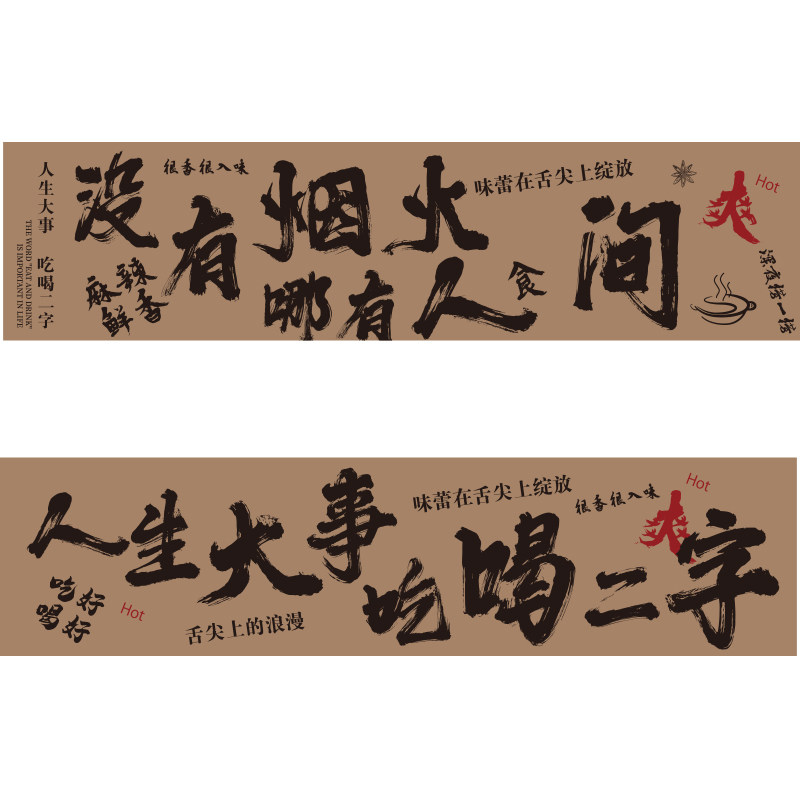 人生大事 吃喝二字
THE WORD "EAT AND DRINK"
IS IMPORTANT IN LIFE
没有烟火
哪有人间
很香很入味
麻辣
鲜香
味蕾在舌尖上绽放
食
爽
Hot
深夜撸一撸
人生大事
吃喝二字
味蕾在舌尖上绽放
很香很入味
Hot
爽
吃好
喝好
Hot
舌尖上的浪漫